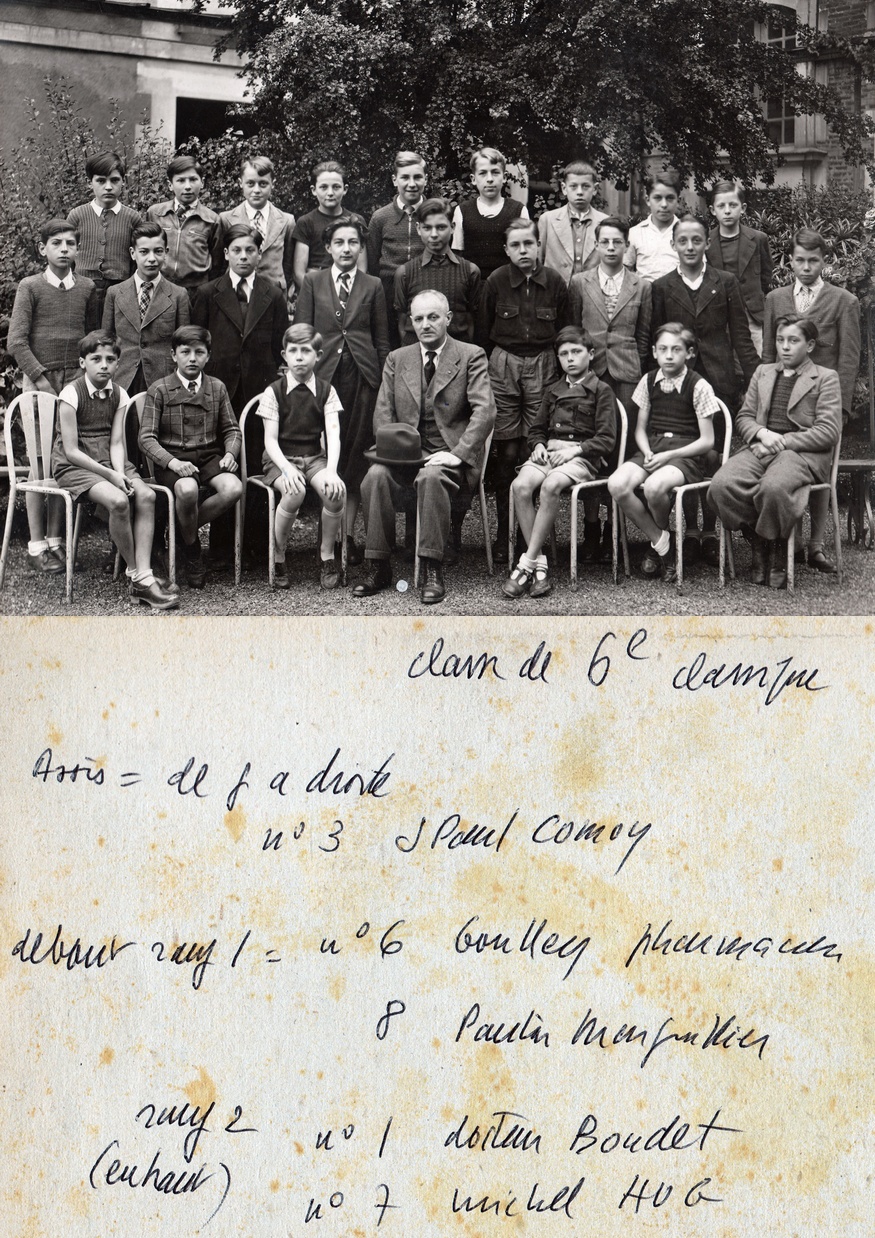 classe de 6e classique
Assis = de g a droite
n° 3 J Paul Comoy
debout rang 1 = n° 6 Goulley pharmacien
8 Paulin
rang 2 n° 1 docteur Boudet
(en haut) n° 7 michel HUG